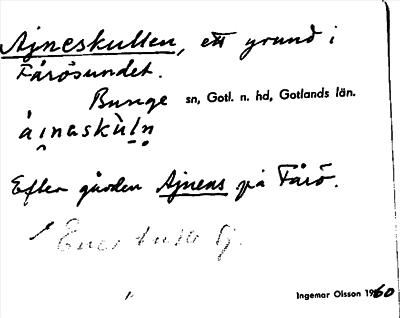 Ajneskullen, ett grund i
Fårösundet.
Bunge sn, Gotl. n. hd, Gotlands län.
åi̯naskùln̥
Efter gården Ajnens på Fårö.
Ingemar Olsson 1960